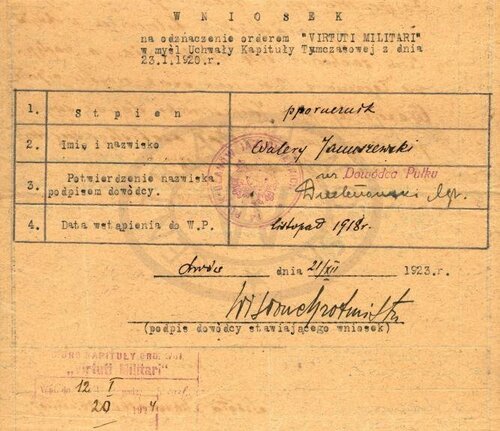 WNIOSEK
na odznaczenie orderem "VIRTUTI MILITARI"
w myśl Uchwały Kapituły Tymczasowej z dnia
23.I.1920r.
1. Stpień pporucznik
2. Imię i nazwisko Walery Januszewski
3. Potwierdzenie nazwiska podpisem dowódcy. Dowódca Pułku
4. Data wstąpienia do W.P. listopad 1918r.
Lwów dnia 21/XII 1923r.
(podpis dowódcy stawiającego wniosek)
KAPITUŁY
"Virtuti Militari"
12 I
20